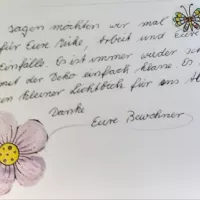 sagen möchten wir mal
für Eure Mühe, Arbeit und Eure
Einfälle. Es ist immer wieder
mit der Deko einfach klasse. Es
kleiner Lichtblick für uns
Danke
Eure Bewohner